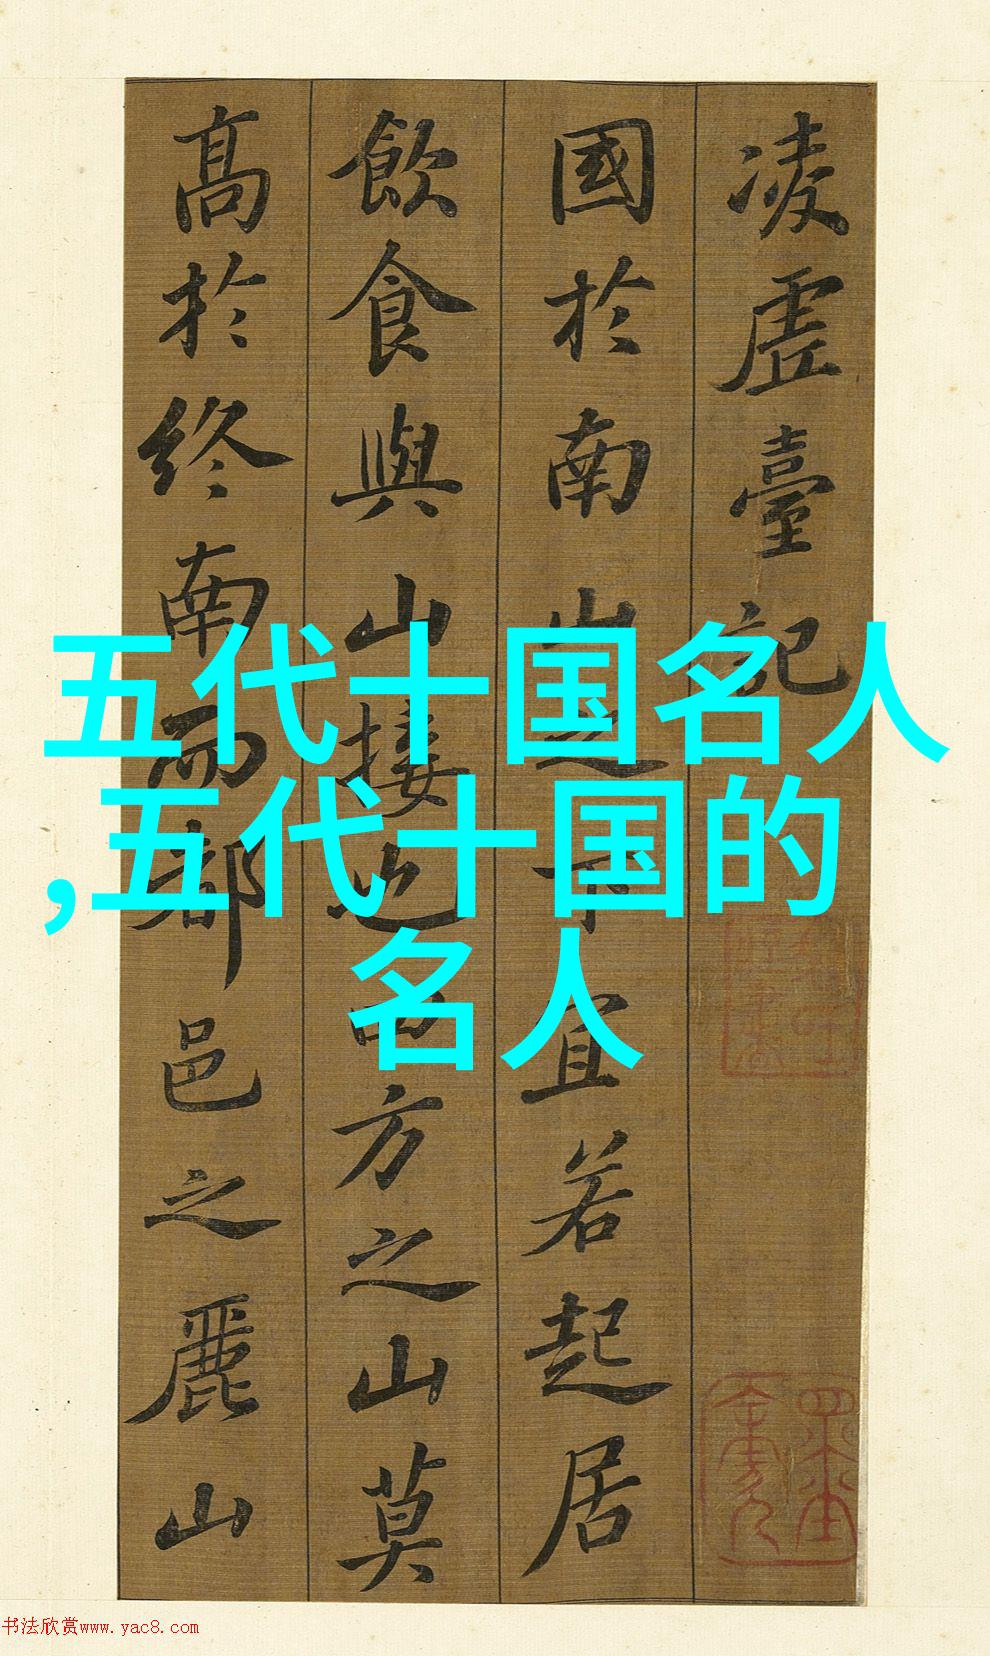 凌虛臺記
國於南山之下宜若起居
飲食與山接也四方之山莫
高於終南而都邑之麗山
五代十国名人
,五代十国的
名人
书法欣赏www.yac8.com